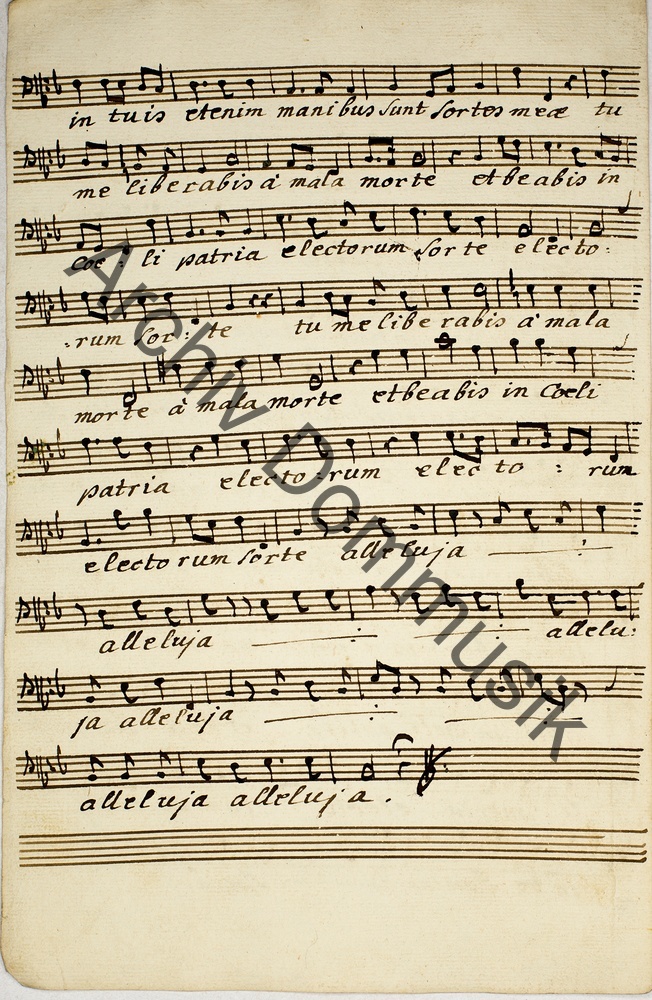 in tuis etenim manibus sunt sortes meæ tu
me liberabis à mala morte et beabis in
Coe: li patria electorum sorte electo:
:rum sor: te tu me liberabis à mala
morte à mala morte et beabis in Coeli
patria electo:rum elec to : rum
electorum sorte alleluja
alleluja allelu:
ja alleluja
alleluja alleluja.
Archiv Dommusik